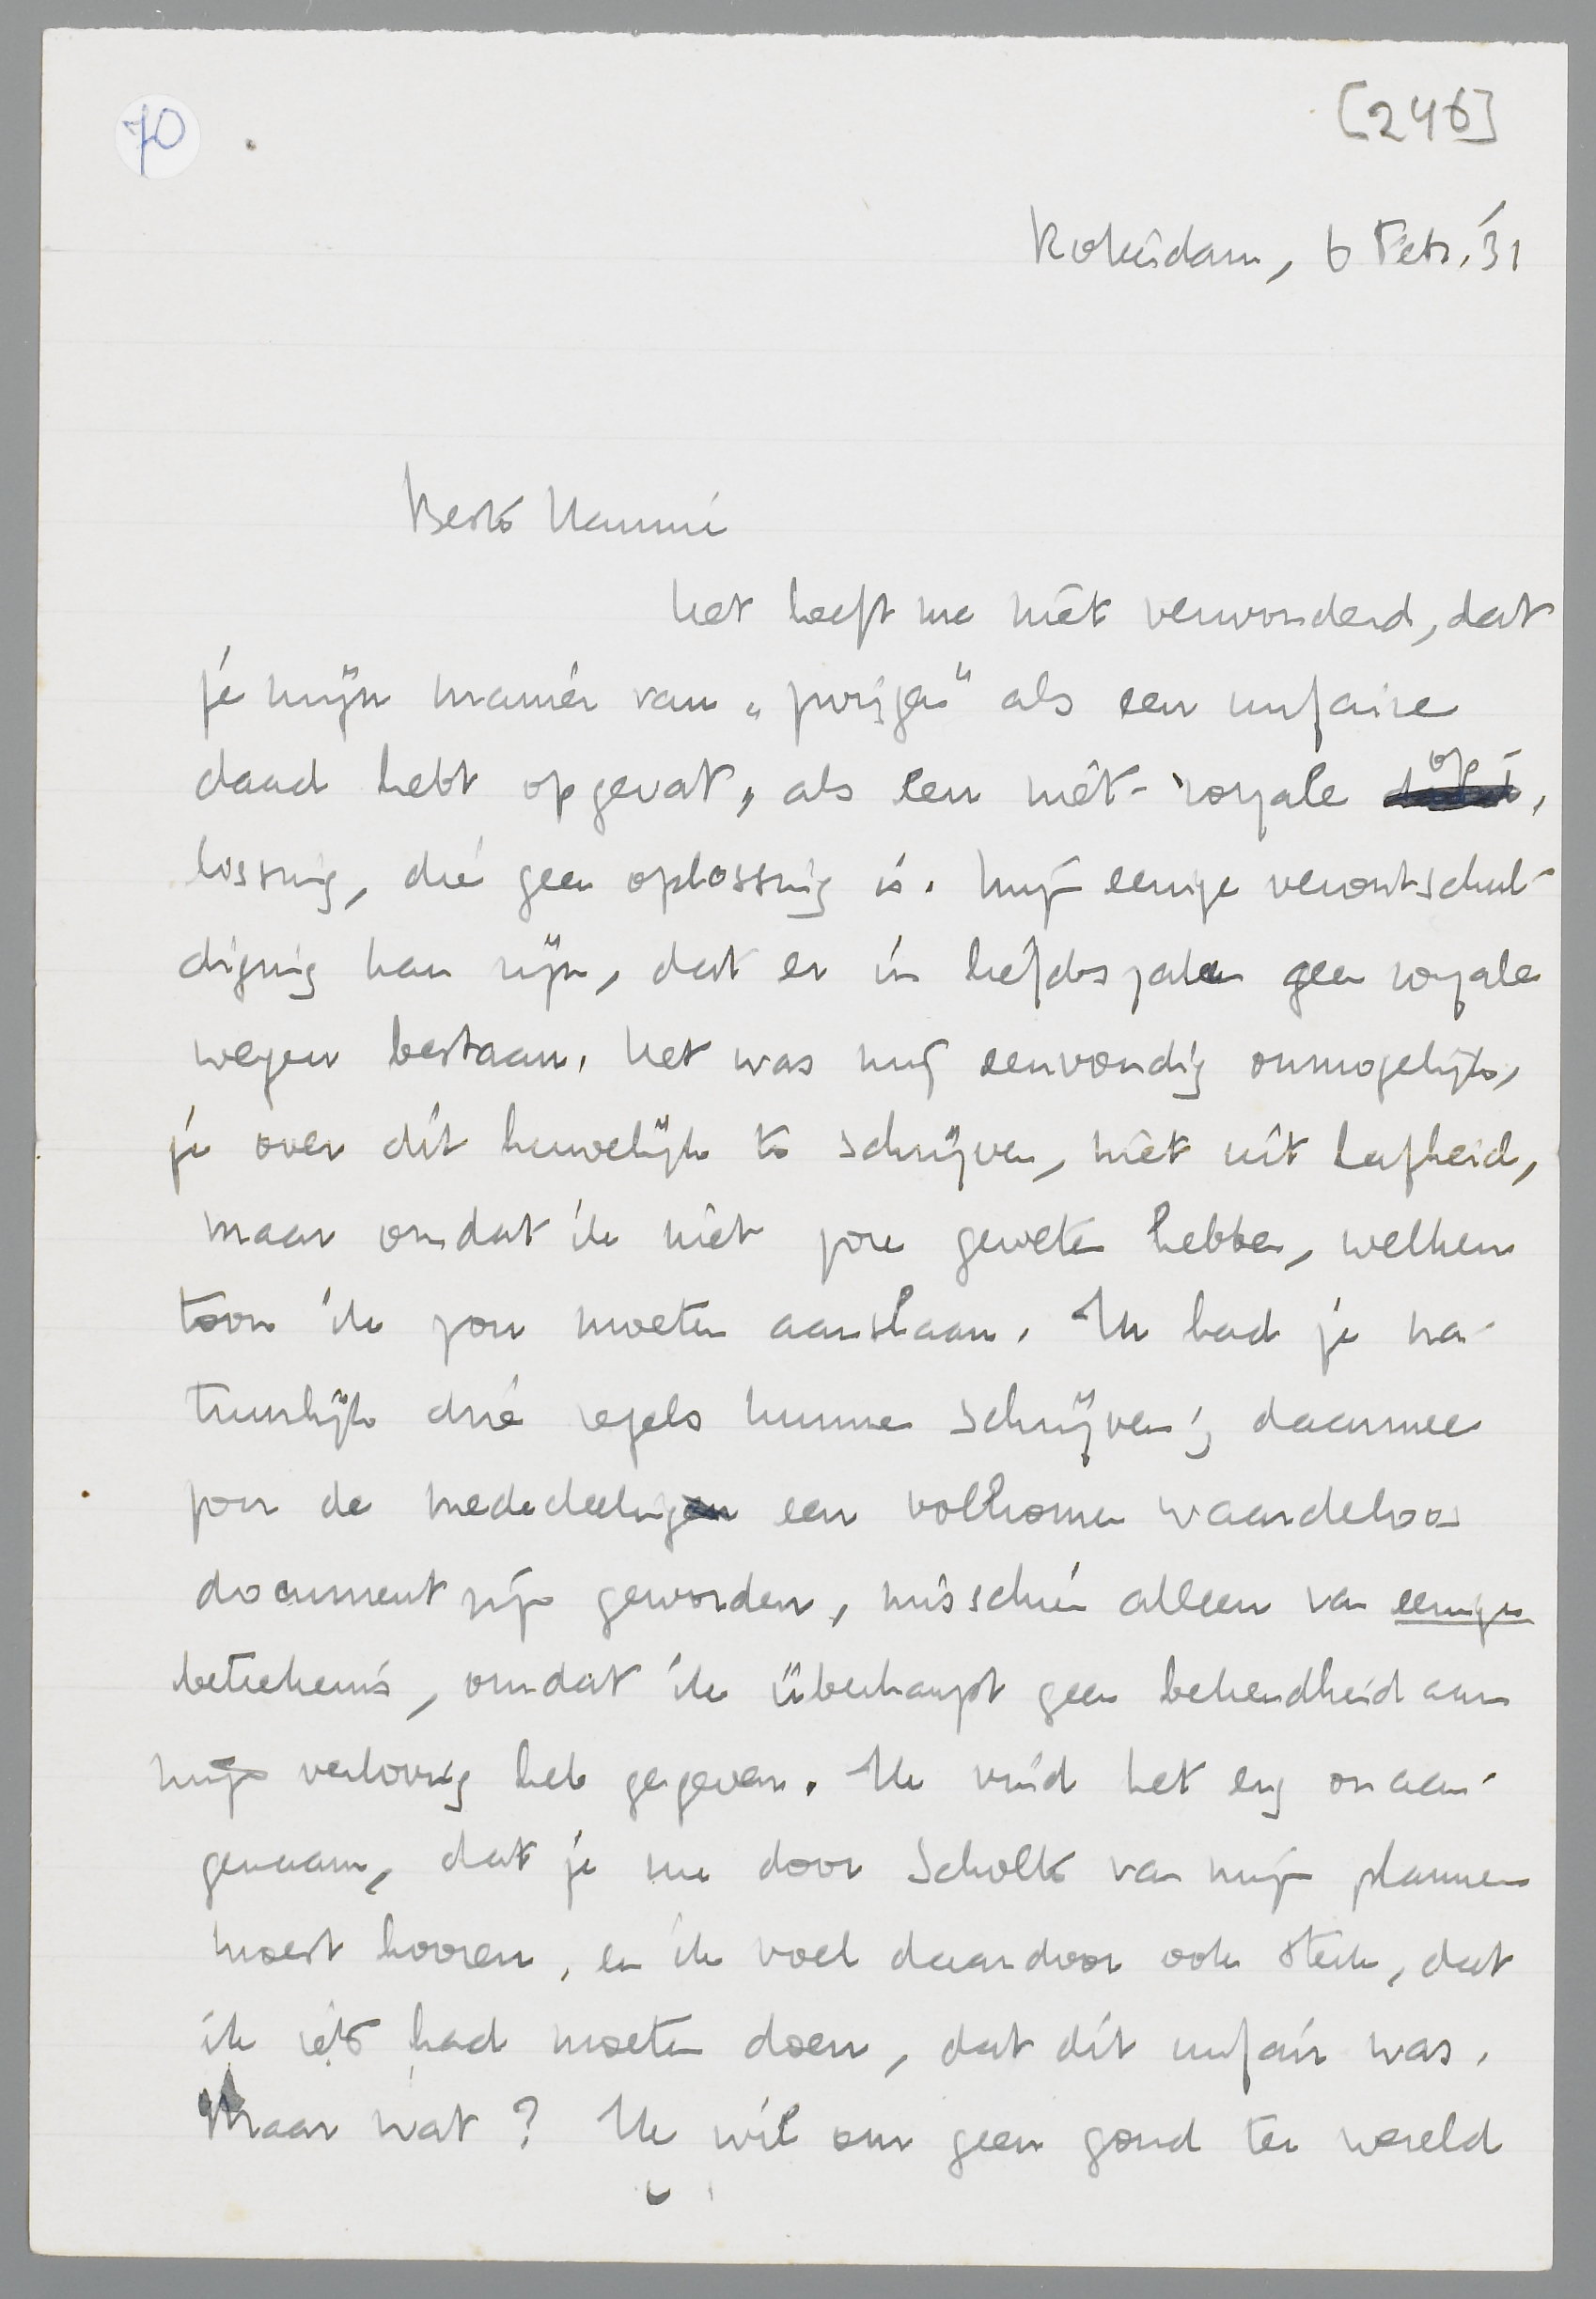 70
[246]
Rotterdam, 6 Febr. '31
Beste Hannie
het heeft me niet verwonderd, dat
je mijn manier van „zwijgen" als een unfaire
daad hebt opgevat, als een niet-royale op-
lossing, die geen oplossing is. Mijn eenige verontschul-
diging kan zijn, dat er in liefdeszaken geen royale
wegen bestaan. Het was mij eenvoudig onmogelijk,
je over dit huwelijk te schrijven, niet uit lafheid,
maar omdat ik niet zou geweten hebben, welken
toon ik zou moeten aanslaan. Ik had je na-
tuurlijk drie regels kunnen schrijven; daarmee
zou de mededeeling een volkomen waardeloos
document zijn geworden, misschien alleen van eenige
beteekenis, omdat ik überhaupt geen bekendheid aan
mijn verloving heb gegeven. Ik vind het erg onaan-
genaam, dat je me door Scholte van mijn plannen
moest hooren, en ik voel daardoor ook sterk, dat
ik iets had moeten doen, dat dit unfair was.
Maar wat? Ik wil om geen goud ter wereld